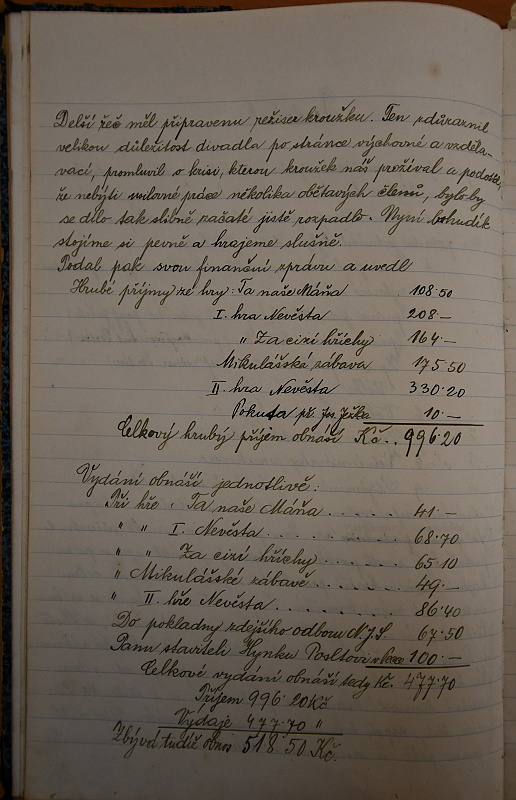 Delší řeč měl připravenu režiser kroužku. Ten zdůraznil
velikou důležitost divadla po stránce výchovné a vzděla-
vací, promluvil o krisi, kterou kroužek náš prožíval a podotkl,
že nebýti usilovné práce několika obětavých členů, bylo by
se dílo tak slibně začaté jistě rozpadlo. Nyní bohudík
stojíme si pevně a hrajeme slušně.
Podal pak svou finanční zprávu a uvedl
Hrubé příjmy ze hry: Ta naše Máňa 108·50
I. hra Nevěsta 208·—
" Za cizí hříchy 164·—
Mikulášská zábava 175·50
II. hra Nevěsta 330·20
Pokuta př. Jos. Ježka 10·—
Celkový hrubý příjem obnáší Kč.. 996·20
Vydání obnáší jednotlivě:
Při hře, Ta naše Máňa ..... 41·—
" " I. Nevěsta ....... 68·70
" " Za cizí hříchy ...... 65·10
" Mikulášské zábavě ...... 49·—
" II. hře Nevěsta ........ 86·40
Do pokladny zdejšího odboru N.J.S. 67·50
Panu staviteli Hynku 100·—
Celkové vydání obnáší tedy Kč. 477·70
Příjem 996·20 Kč
Vydaje 477·70 "
Zbývá tudíž obnos 518·50 Kč.